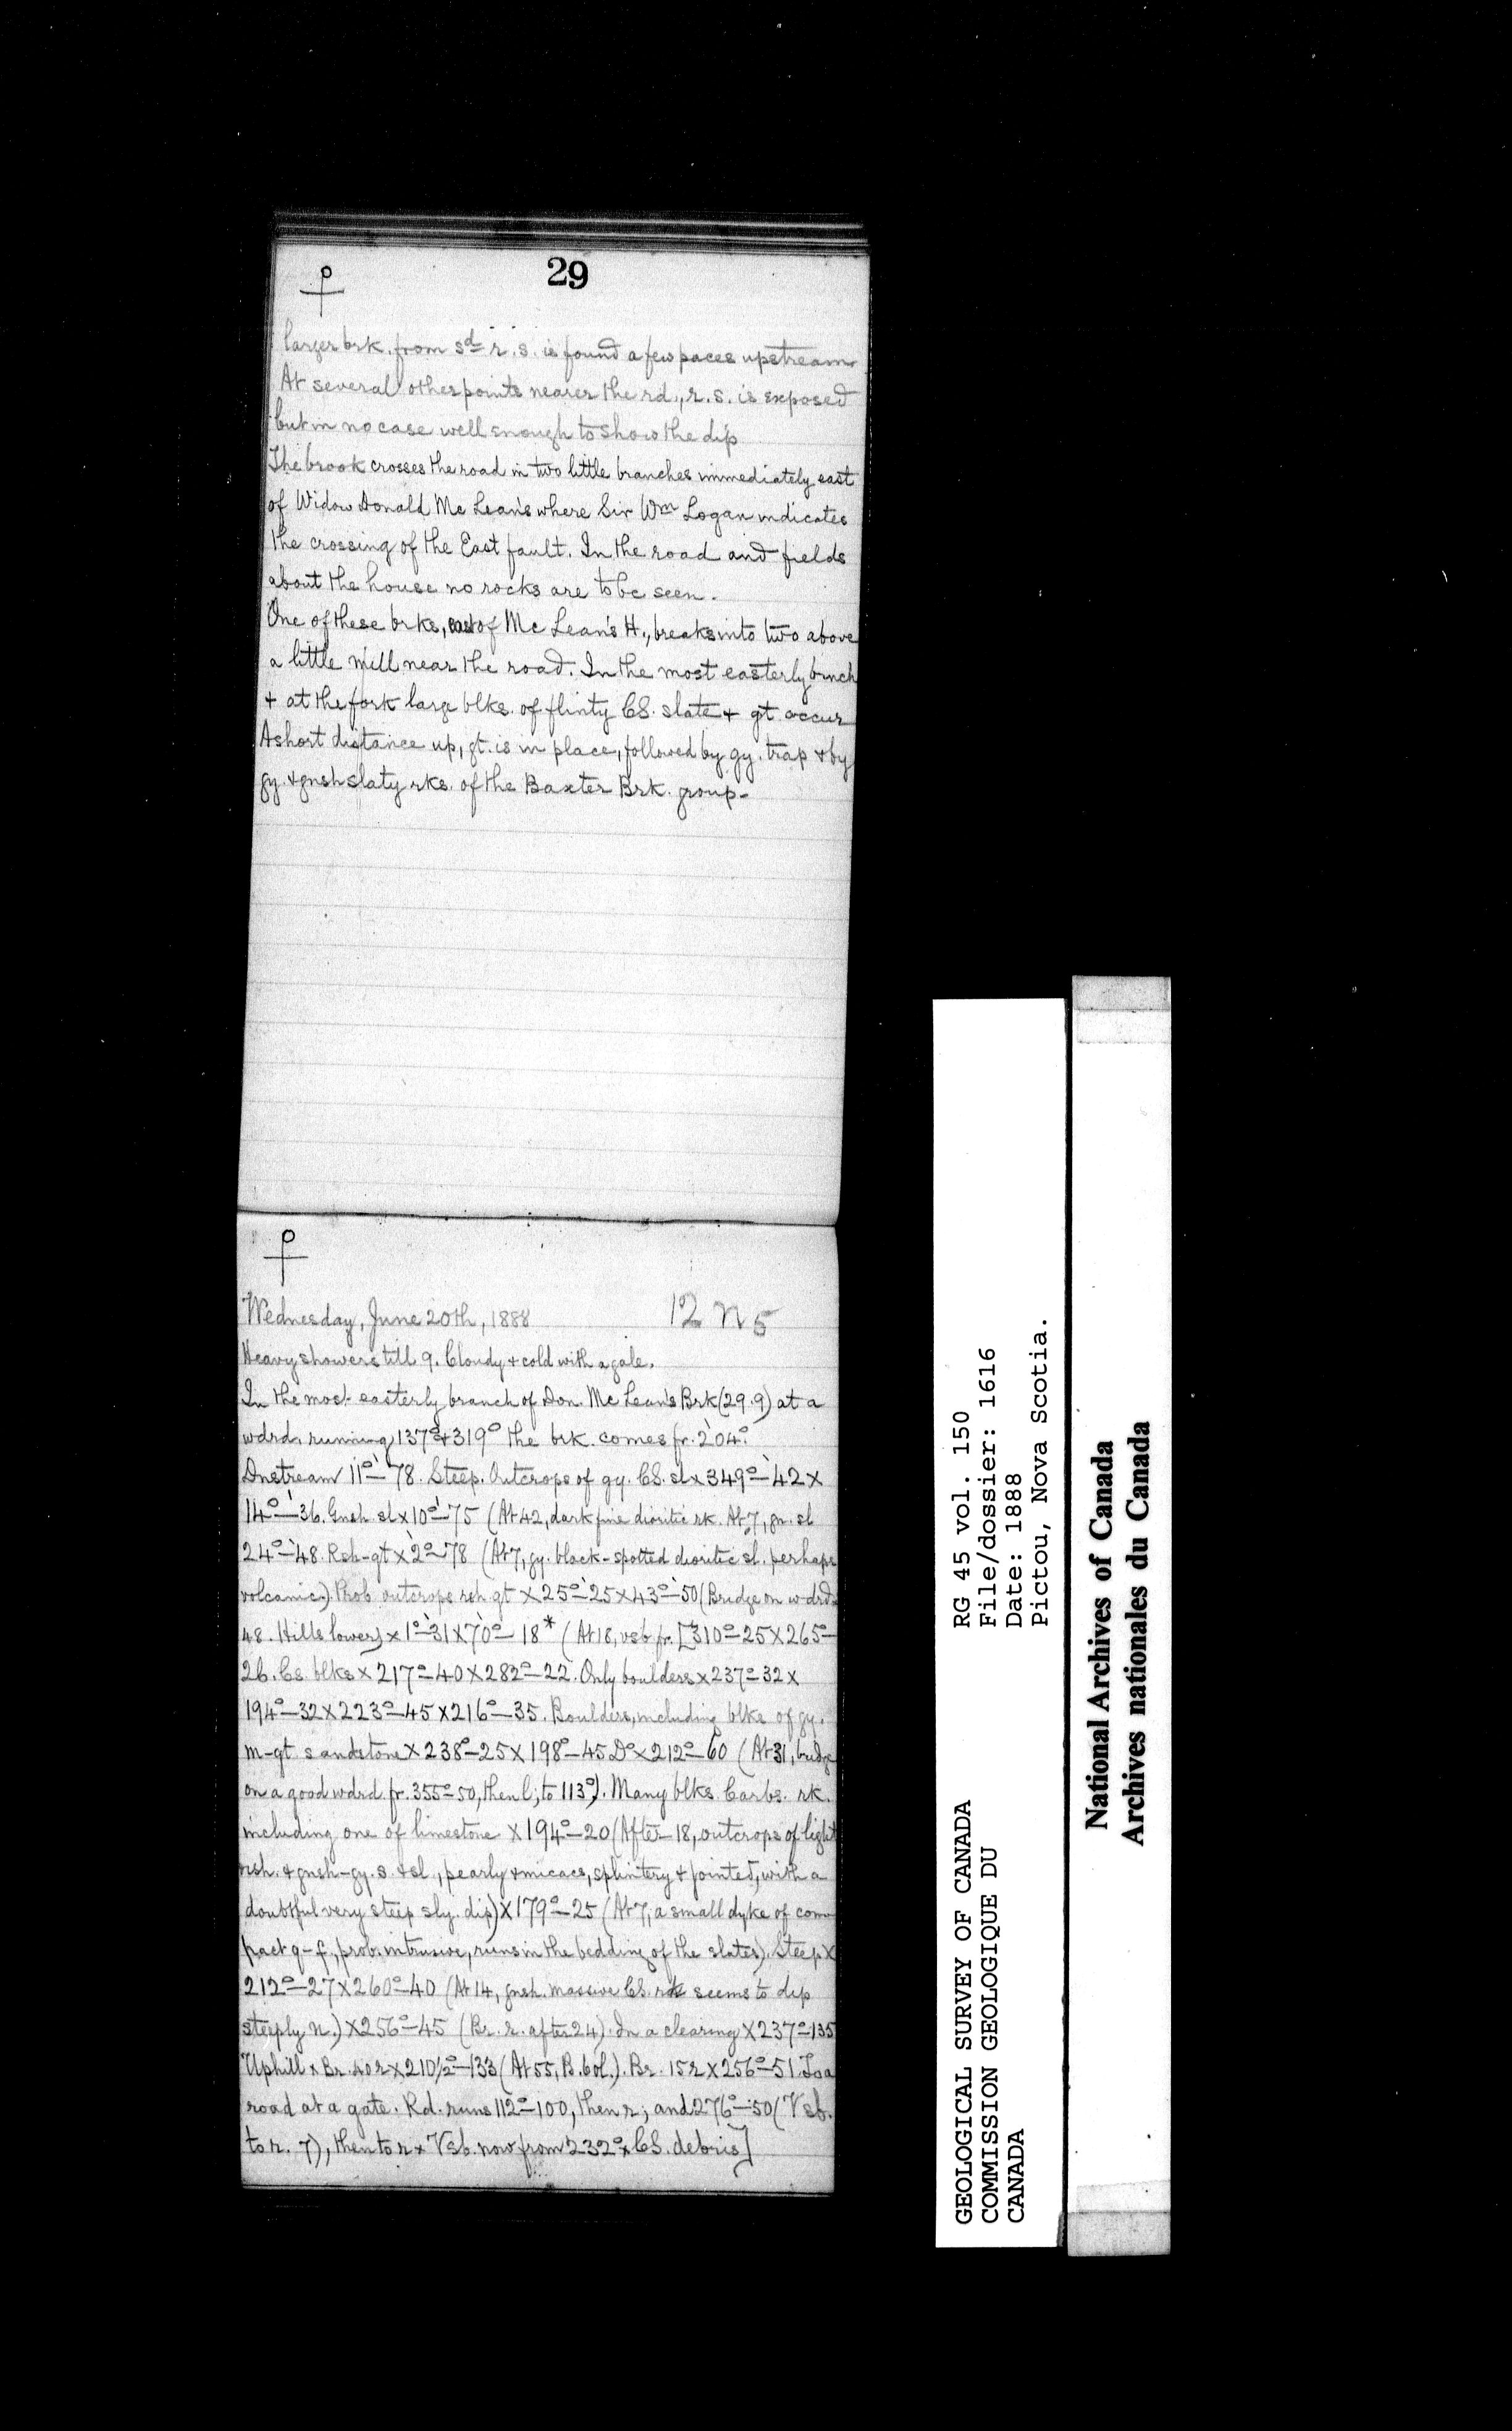 29
larger brk. from sd r. s. is found a few paces upstream
At several other points nearer the rd., r. s. is exposed
but in no case well enough to show the dip
The brook crosses the road in two little branches immediately east
of Widow Donald Mc Lean's where Sir Wm Logan indicates
the crossing of the East fault. In the road and fields
about the house no rocks are to be seen.
One of these brks, east of Mc Lean's H., breaks into two above
a little mill near the road. In the most easterly brnch
+ at the fork large blks. of flinty CS. slate + gt. occur
A short distance up, gt. is in place, followed by gy. trap + by
gy. + gnsh slaty rks. of the Baxter Brk. group-
Wednesday, June 20th, 1888 12 n 5
Heavy showers till 9. Cloudy + cold with a gale.
In the most easterly branch of Don. Mc Lean's Brk (29.9) at a
wdrd. running 137° + 319° the brk. comes fr. 204°.
Dnstream 11°–78. Steep. Outcrops of gy. CS. sl x 349°–42 x
14°–36. Gnsh sl x 10°–75 (At 42, dark fine dioritic rk. At 7, gn. sl
24°–48. Rsh-gt x 2°–78 (At 7, gy. black-spotted dioritic sl. perhaps
volcanic). Prob. outcrops rsh gt x 25°–25 x 43°–50 (Bridge on w-drd.
48. Hills lower) x 1°–31 x 70°–18* (At 18, vsb fr. [310°–25 x 265°–
26. Cs. blks x 217°–40 x 282°–22. Only boulders x 237°–32 x
194°–32 x 223°–45 x 216°–35. Boulders, including blks of gy.
m-gt sandstone x 238°–25 x 198°–45 Do x 212°–60 (At 31, bridge
on a good wdrd fr. 355°–50, then l; to 113°). Many blks Carbs. rk.
including one of limestone x 194°–20 (After 18, outcrops of light
rsh. + gnsh-gy. s. + sl., pearly + micacs, splintery + jointed, with a
doubtful very steep sly. dip) x 179°–25 (At 7, a small dyke of com-
pact q-f., prob. intrusive, runs in the bedding of the slates). Steep x
212°–27 x 260°–40 (At 14, gnsh. massive CS. rk seems to dip
steeply n.) x 256°–45 (Br. r. after 24). In a clearing x 237°–135
Uphill x Br. 40 r x 210½°–133 (At 55, B. 60 l.). Br. 15 r x 256°–51. To a
road at a gate. Rd. runs 112°–100, then r; and 276°–50 (Vsb.
to r. 7), then to r x Vsb. now from 232° x CS. debris]
GEOLOGICAL SURVEY OF CANADA
COMMISSION GEOLOGIQUE DU
CANADA
RG 45 vol. 150
File/dossier: 1616
Date: 1888
Pictou, Nova Scotia.
National Archives of Canada
Archives nationales du Canada